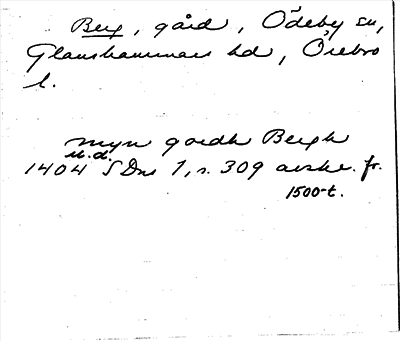 Berg, gård, Ödeby sn,
Glanshammars hd, Örebro
l.
myn gordh Bergh
u.d.
1404 SDns 1, s. 309 avskr. fr.
1500-t.